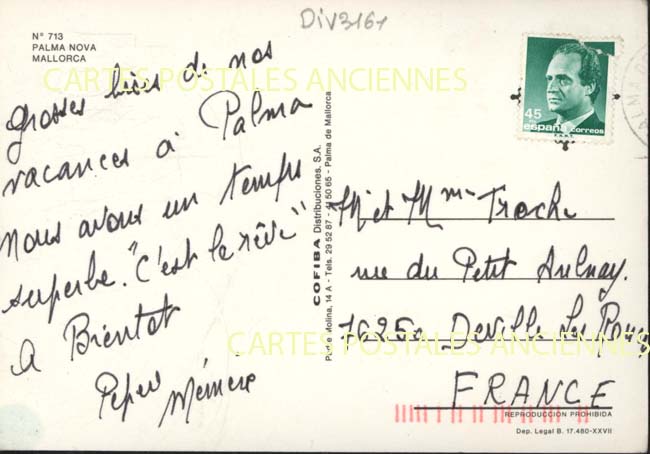 DIV3161
Nº 713
PALMA NOVA
MALLORCA
CARTES POSTALES ANCIENNES
45
españa correos
grosses bises de nos
vacances à Palma
Nous avons un temps
superbe. "C'est le rêve"
A Bientot
Pépère Mémère
COFIBA Distribuciones, S.A.
Molina, 14 A - Tels. 29 52 87 - 41 50 65 - Palma de Mallorca
M et Mme Troche
rue du Petit Aulnay.
76250 Deville les Rouen
CARTES POSTALES ANCIENNES
FRANCE
REPRODUCCION PROHIBIDA
Dep. Legal B. 17.480-XXVII